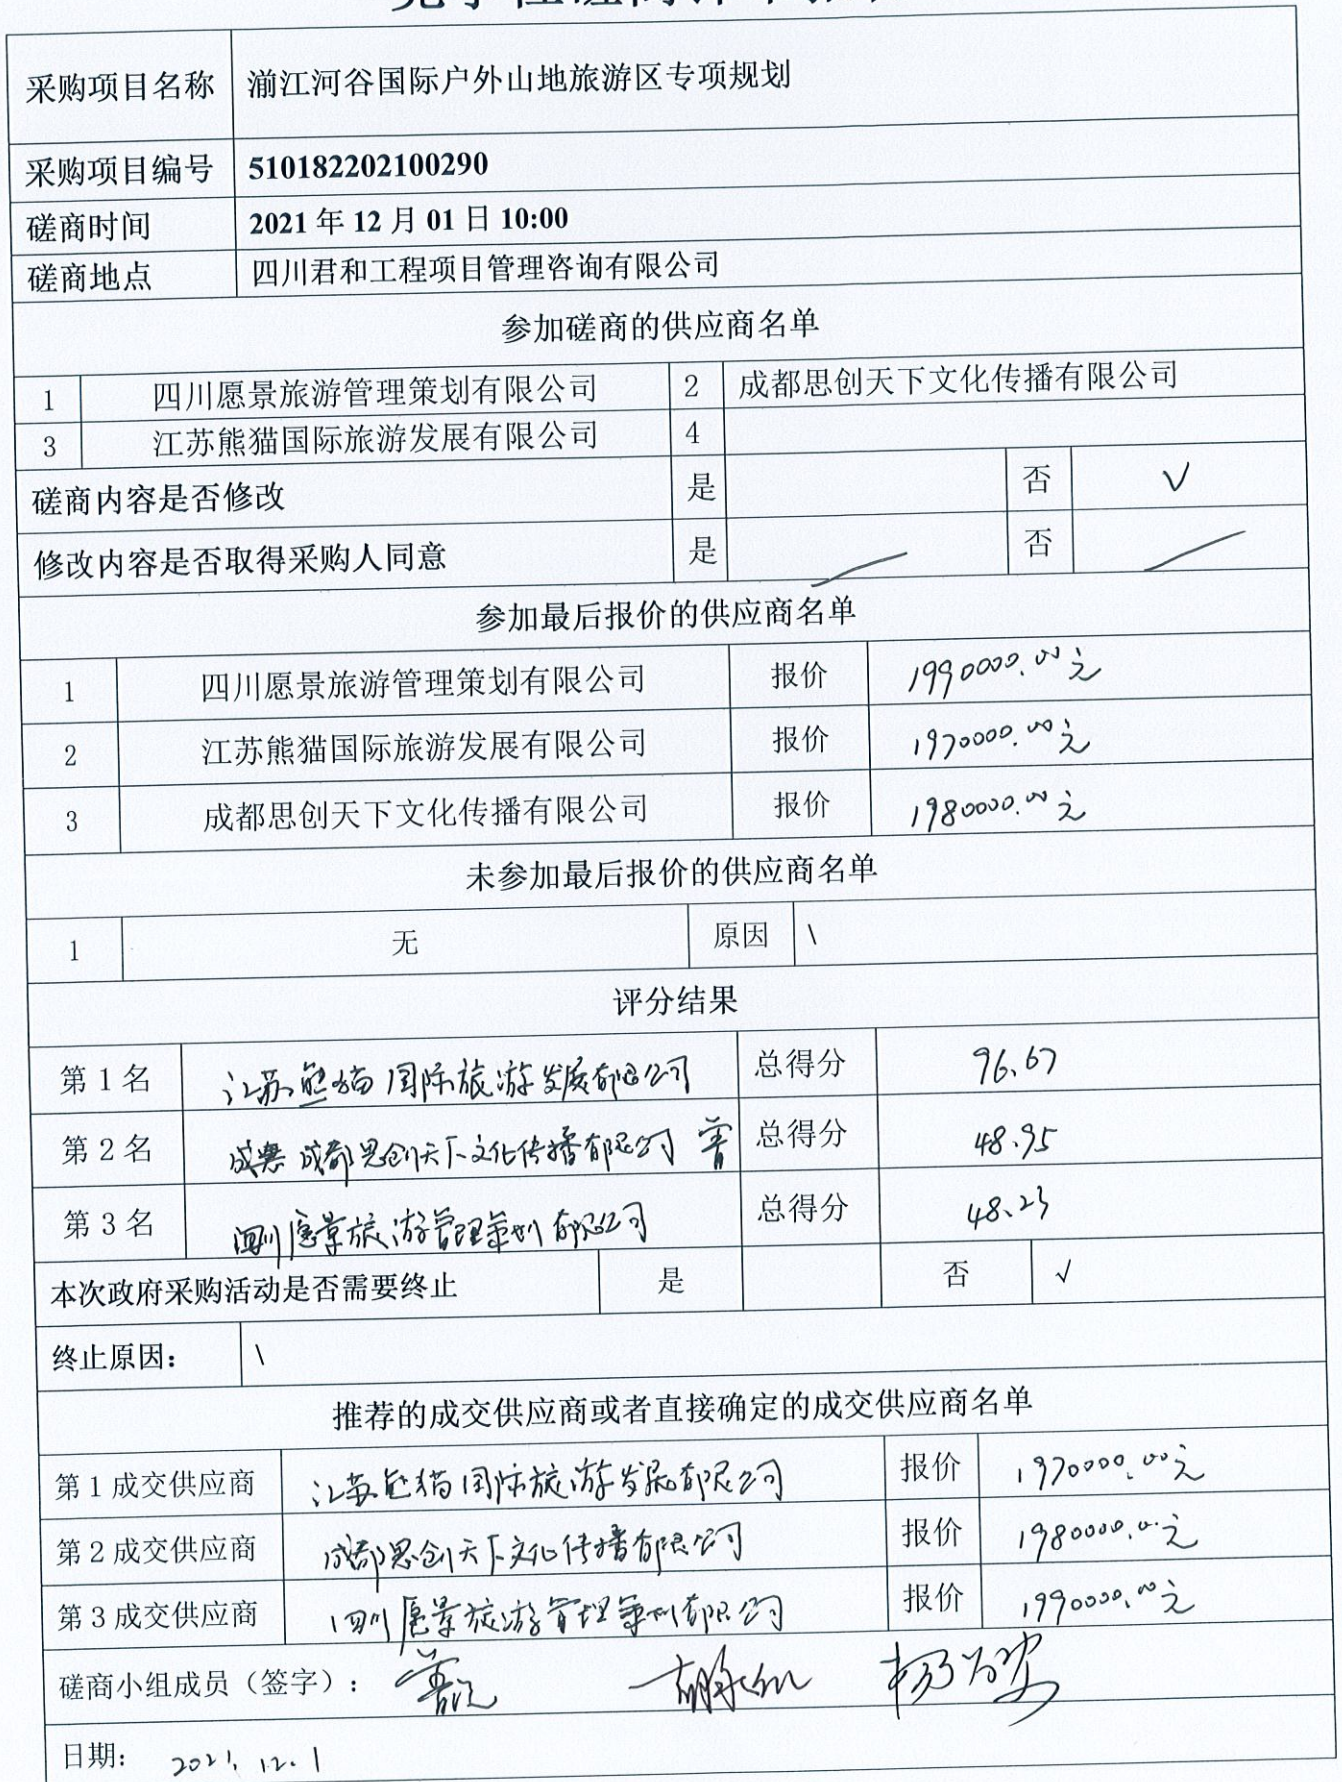 采购项目名称 湔江河谷国际户外山地旅游区专项规划
采购项目编号 510182202100290
磋商时间 2021 年 12 月 01 日 10:00
磋商地点 四川君和工程项目管理咨询有限公司
参加磋商的供应商名单
1 四川愿景旅游管理策划有限公司 2 成都思创天下文化传播有限公司
3 江苏熊猫国际旅游发展有限公司 4
磋商内容是否修改 是 否 √
修改内容是否取得采购人同意 是 否
参加最后报价的供应商名单
1 四川愿景旅游管理策划有限公司 报价 1990000.00元
2 江苏熊猫国际旅游发展有限公司 报价 1970000.00元
3 成都思创天下文化传播有限公司 报价 1980000.00元
未参加最后报价的供应商名单
1 无 原因 \
评分结果
第 1 名 江苏熊猫国际旅游发展有限公司 总得分 96.67
第 2 名 成都思创天下文化传播有限公司 总得分 48.95
第 3 名 四川愿景旅游管理策划有限公司 总得分 48.23
本次政府采购活动是否需要终止 是 否 √
终止原因： \
推荐的成交供应商或者直接确定的成交供应商名单
第 1 成交供应商 江苏熊猫国际旅游发展有限公司 报价 1970000.00元
第 2 成交供应商 成都思创天下文化传播有限公司 报价 1980000.00元
第 3 成交供应商 四川愿景旅游管理策划有限公司 报价 1990000.00元
磋商小组成员（签字）：
日期： 2021.12.1